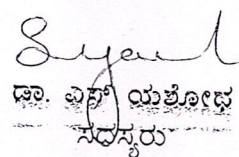 ಡಾ. ಎಸ್ ಯಶೋಧ
ಸದಸ್ಯರು